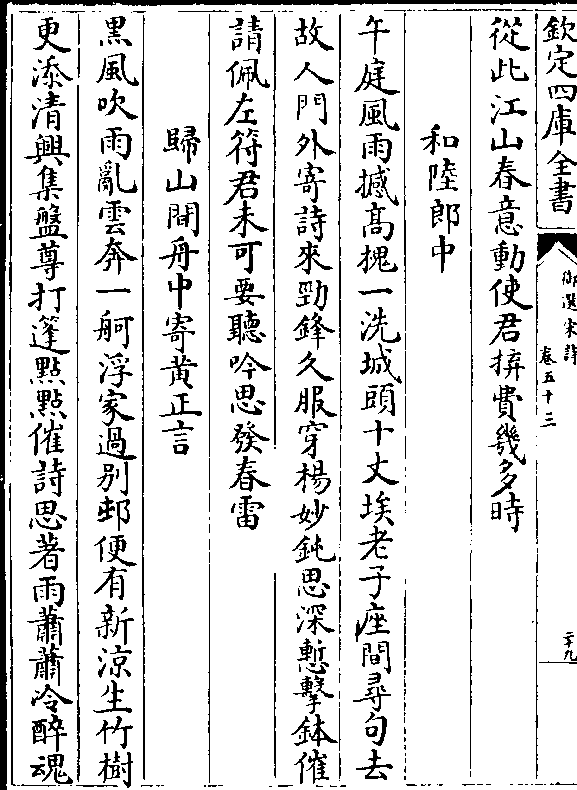 欽定四庫全書
御選宋詩
卷五十三
二十九
從此江山春意動使君拚費幾多時
和陸郎中
午庭風雨撼髙槐一洗城頭十丈埃老子座間尋句去
故人門外寄詩來勁鋒久服穿楊妙鈍思深慙擊鉢催
請佩左符君未可要聽吟思發春雷
歸山間舟中寄黄正言
黒風吹雨亂雲奔一舸浮家過别邨便有新涼生竹樹
更添清興集盤尊打篷點點催詩思著雨蕭蕭冷醉魂